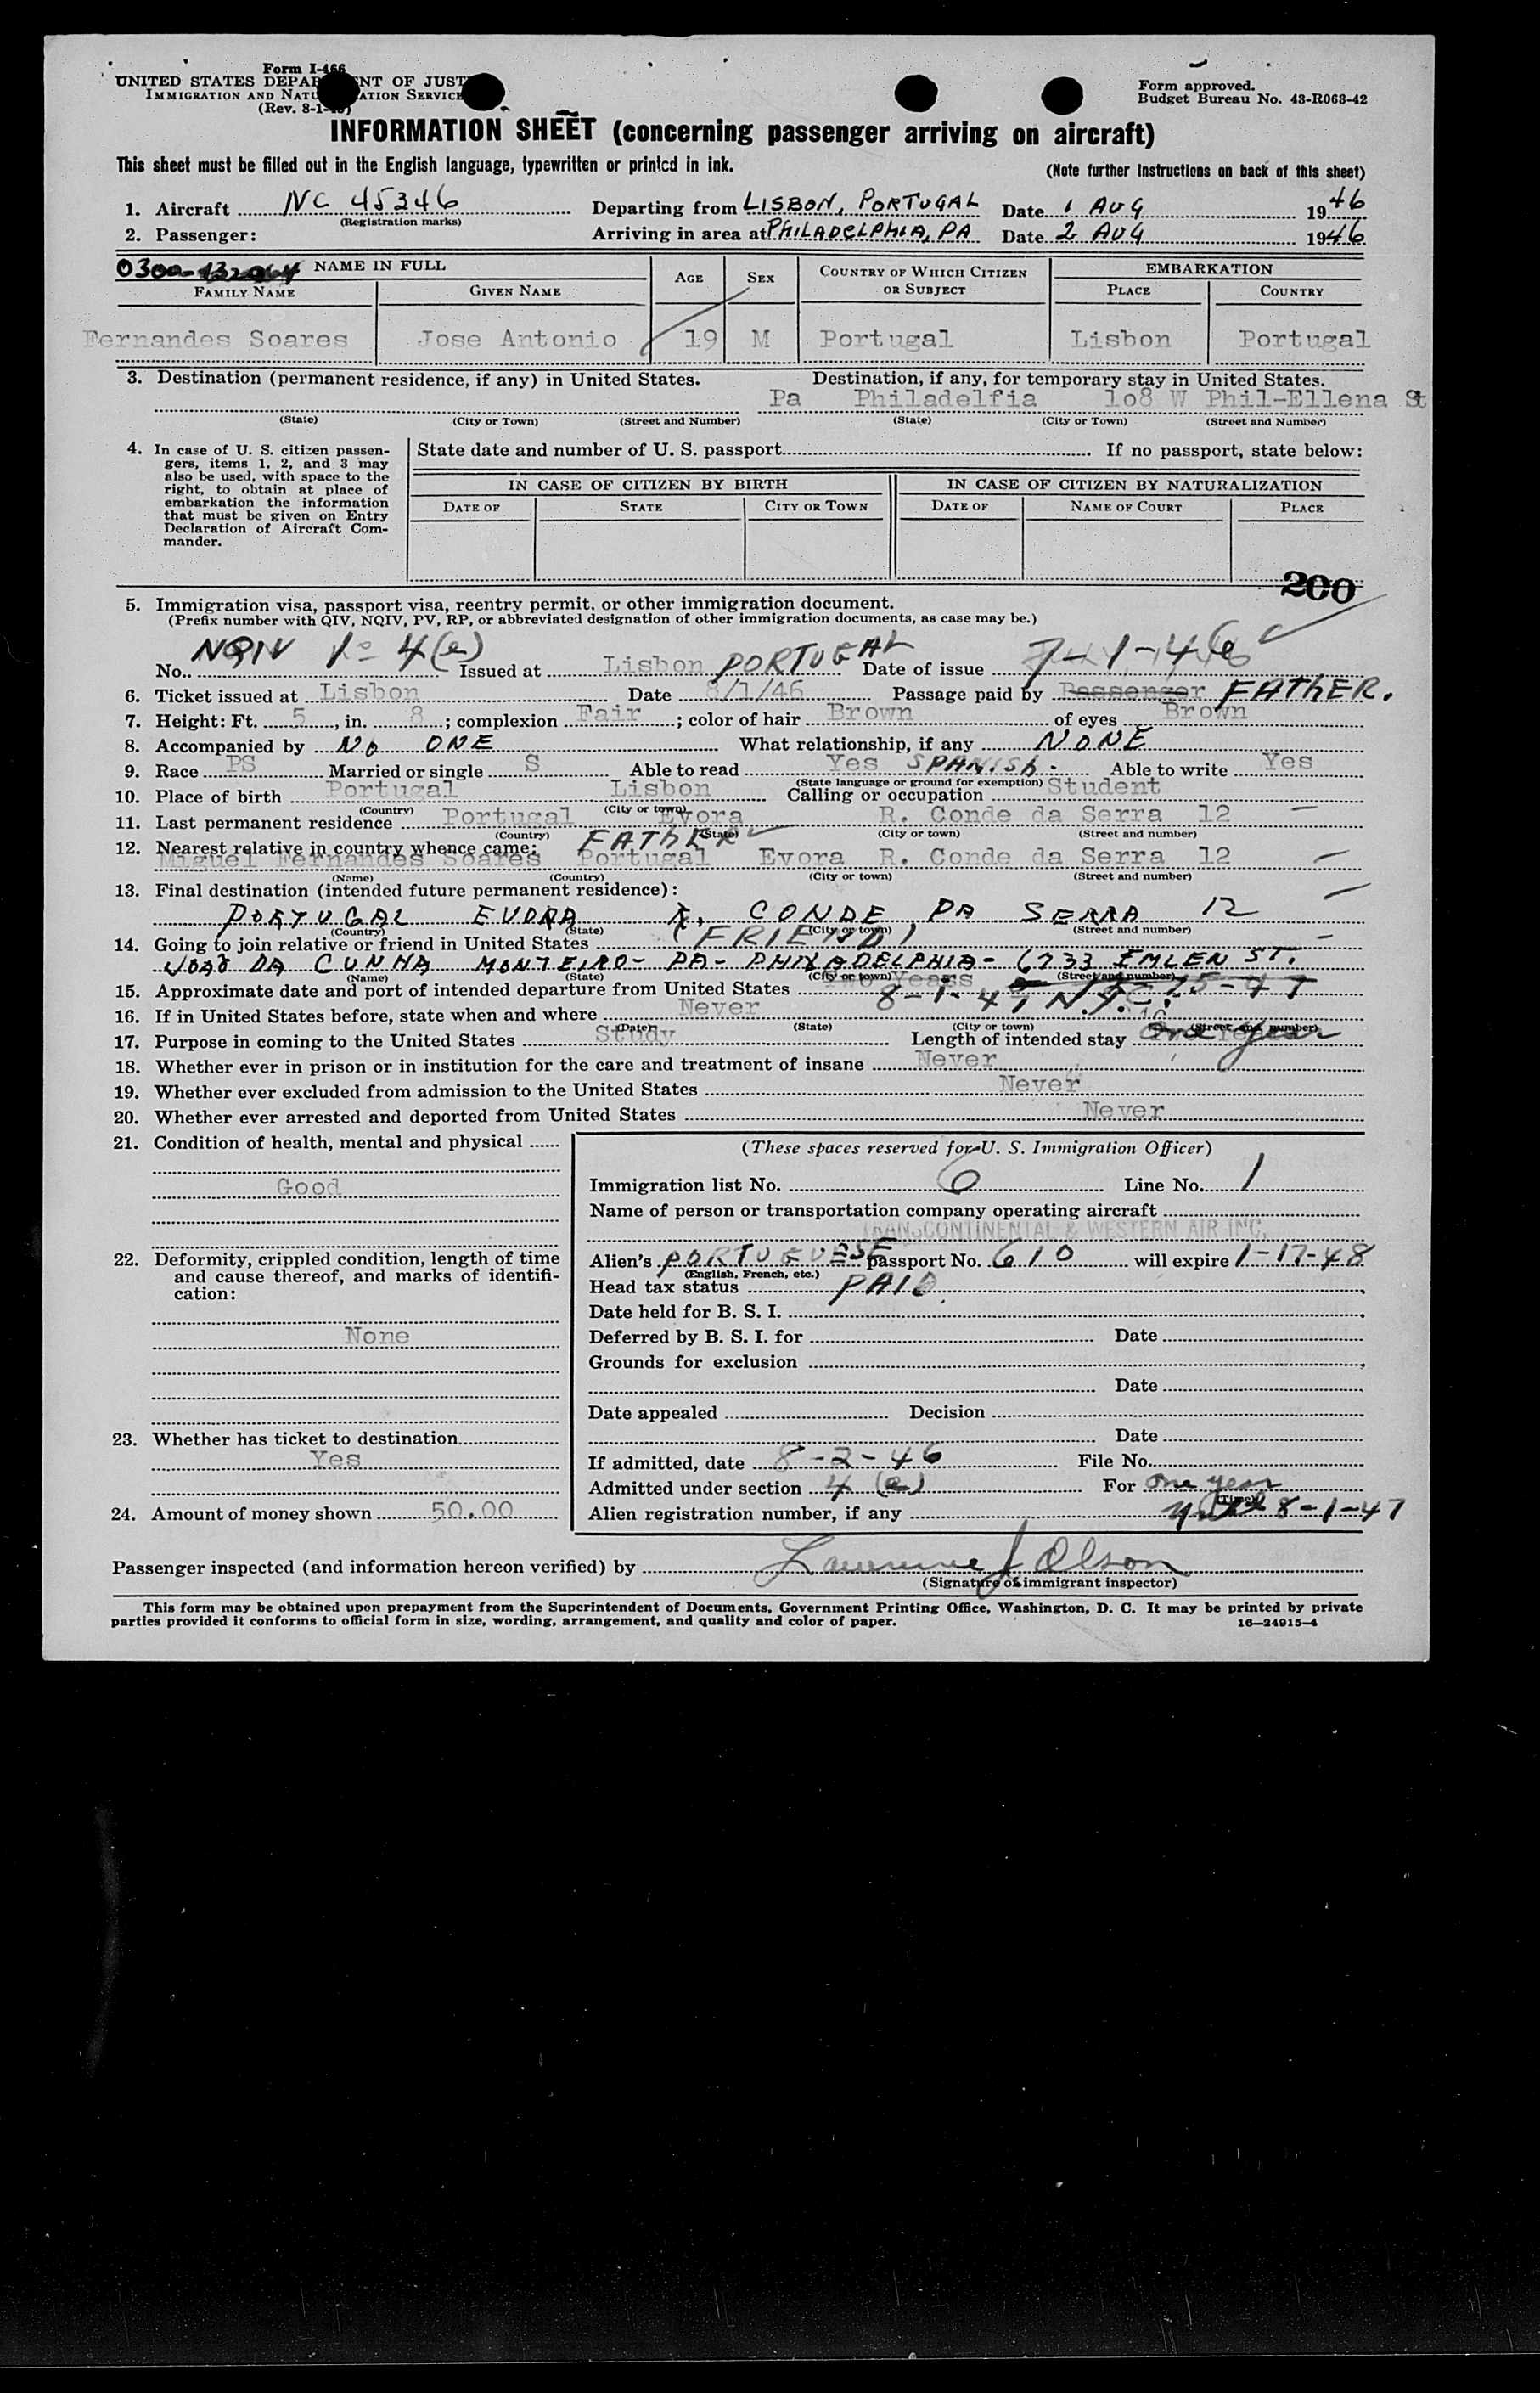 Form I-466
UNITED STATES DEPARTMENT OF JUSTICE
IMMIGRATION AND NATURALIZATION SERVICE
(Rev. 8-1-
Form approved.
Budget Bureau No. 43-R063-42
INFORMATION SHEET (concerning passenger arriving on aircraft)
This sheet must be filled out in the English language, typewritten or printed in ink.
(Note further instructions on back of this sheet)
1. Aircraft NC 45346 Departing from LISBON, PORTUGAL Date 1 AUG 1946
(Registration marks)
2. Passenger: Arriving in area at PHILADELPHIA, PA Date 2 AUG 1946
0300- NAME IN FULL AGE SEX COUNTRY OF WHICH CITIZEN OR SUBJECT EMBARKATION
FAMILY NAME GIVEN NAME PLACE COUNTRY
Fernandes Soares Jose Antonio 19 M Portugal Lisbon Portugal
3. Destination (permanent residence, if any) in United States. Destination, if any, for temporary stay in United States.
Pa Philadelfia 1o8 W Phil-Ellena St
(State) (City or Town) (Street and Number) (State) (City or Town) (Street and Number)
4. In case of U. S. citizen passengers, items 1, 2, and 3 may also be used, with space to the right, to obtain at place of embarkation the information that must be given on Entry Declaration of Aircraft Commander.
State date and number of U. S. passport If no passport, state below:
IN CASE OF CITIZEN BY BIRTH IN CASE OF CITIZEN BY NATURALIZATION
DATE OF STATE CITY OR TOWN DATE OF NAME OF COURT PLACE
200
5. Immigration visa, passport visa, reentry permit, or other immigration document.
(Prefix number with QIV, NQIV, PV, RP, or abbreviated designation of other immigration documents, as case may be.)
No. NQIV 1= 4(e) Issued at Lisbon PORTUGAL Date of issue 7-1-46
6. Ticket issued at Lisbon Date 8/1/46 Passage paid by Passenger FATHER.
7. Height: Ft. 5, in. 8; complexion Fair; color of hair Brown of eyes Brown
8. Accompanied by NO ONE What relationship, if any NONE
9. Race PS Married or single S Able to read Yes SPANISH. Able to write Yes
(State language or ground for exemption)
10. Place of birth Portugal Lisbon Calling or occupation Student
(Country) (City or town)
11. Last permanent residence Portugal Evora R. Conde da Serra 12
(Country) (State) (City or town) (Street and number)
12. Nearest relative in country whence came: FATHER
Miguel Fernandes Soares Portugal Evora R. Conde da Serra 12
(Name) (Country) (City or town) (Street and number)
13. Final destination (intended future permanent residence):
PORTUGAL EVORA R. CONDE DA SERRA 12
(Country) (State) (City or town) (Street and number)
14. Going to join relative or friend in United States (FRIEND)
JOAO DA CUNHA MONTEIRO- PA- PHILADELPHIA- 6733 EMLEN ST.
(Name) (State) (City or town) (Street and number)
15. Approximate date and port of intended departure from United States Two Years 8-1-47 N.Y.
16. If in United States before, state when and where Never
(Date) (State) (City or town) (Street and number)
17. Purpose in coming to the United States Study Length of intended stay One year
18. Whether ever in prison or in institution for the care and treatment of insane Never
19. Whether ever excluded from admission to the United States Never
20. Whether ever arrested and deported from United States Never
21. Condition of health, mental and physical
Good
22. Deformity, crippled condition, length of time and cause thereof, and marks of identification:
None
23. Whether has ticket to destination
Yes
24. Amount of money shown 50.00
(These spaces reserved for U. S. Immigration Officer)
Immigration list No. 6 Line No. 1
Name of person or transportation company operating aircraft
TRANSCONTINENTAL & WESTERN AIR INC.
Alien's PORTUGUESE passport No. 610 will expire 1-17-48
(English, French, etc.)
Head tax status PAID
Date held for B. S. I.
Deferred by B. S. I. for Date
Grounds for exclusion
Date
Date appealed Decision
Date
If admitted, date 8-2-46 File No.
Admitted under section 4(e) For one year
(Time)
Alien registration number, if any until 8-1-47
Passenger inspected (and information hereon verified) by Lawrence J Olson
(Signature of immigrant inspector)
This form may be obtained upon prepayment from the Superintendent of Documents, Government Printing Office, Washington, D. C. It may be printed by private
parties provided it conforms to official form in size, wording, arrangement, and quality and color of paper.
16—24915-4